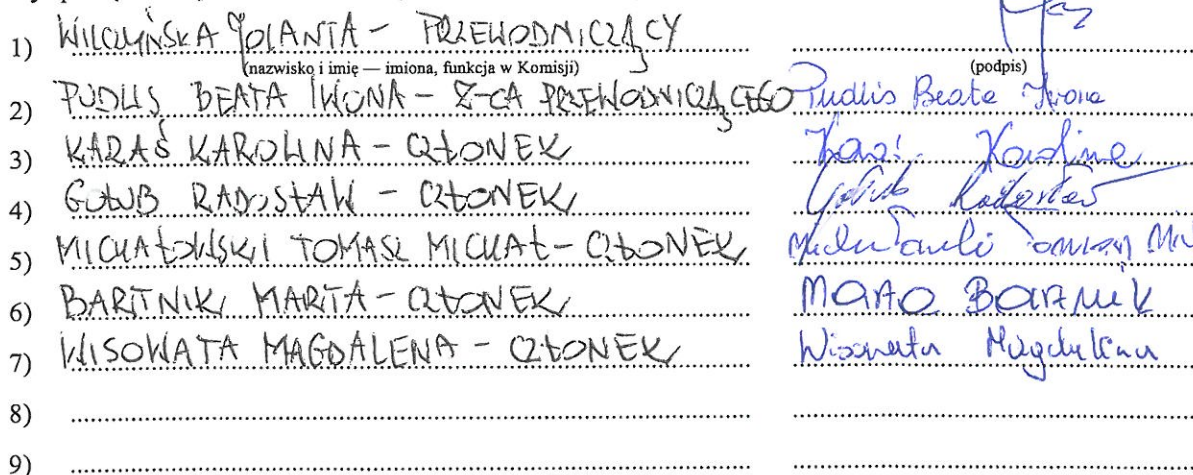 1) WILCZYŃSKA JOLANTA – PRZEWODNICZĄCY
(nazwisko i imię — imiona, funkcja w Komisji) (podpis)
2) PUDLIS BEATA IWONA – Z-CA PRZEWODNICZĄCEGO Pudlis Beata Iwona
3) KARAŚ KAROLINA – CZŁONEK Karaś Karolina
4) GOŁUB RADOSŁAW – CZŁONEK Gołub Radosław
5) MICHAŁOWSKI TOMASZ MICHAŁ – CZŁONEK
6) BARTNIK MARTA – CZŁONEK MARTA BARTNIK
7) WISOWATA MAGDALENA – CZŁONEK Wisowata Magdalena
8)
9)